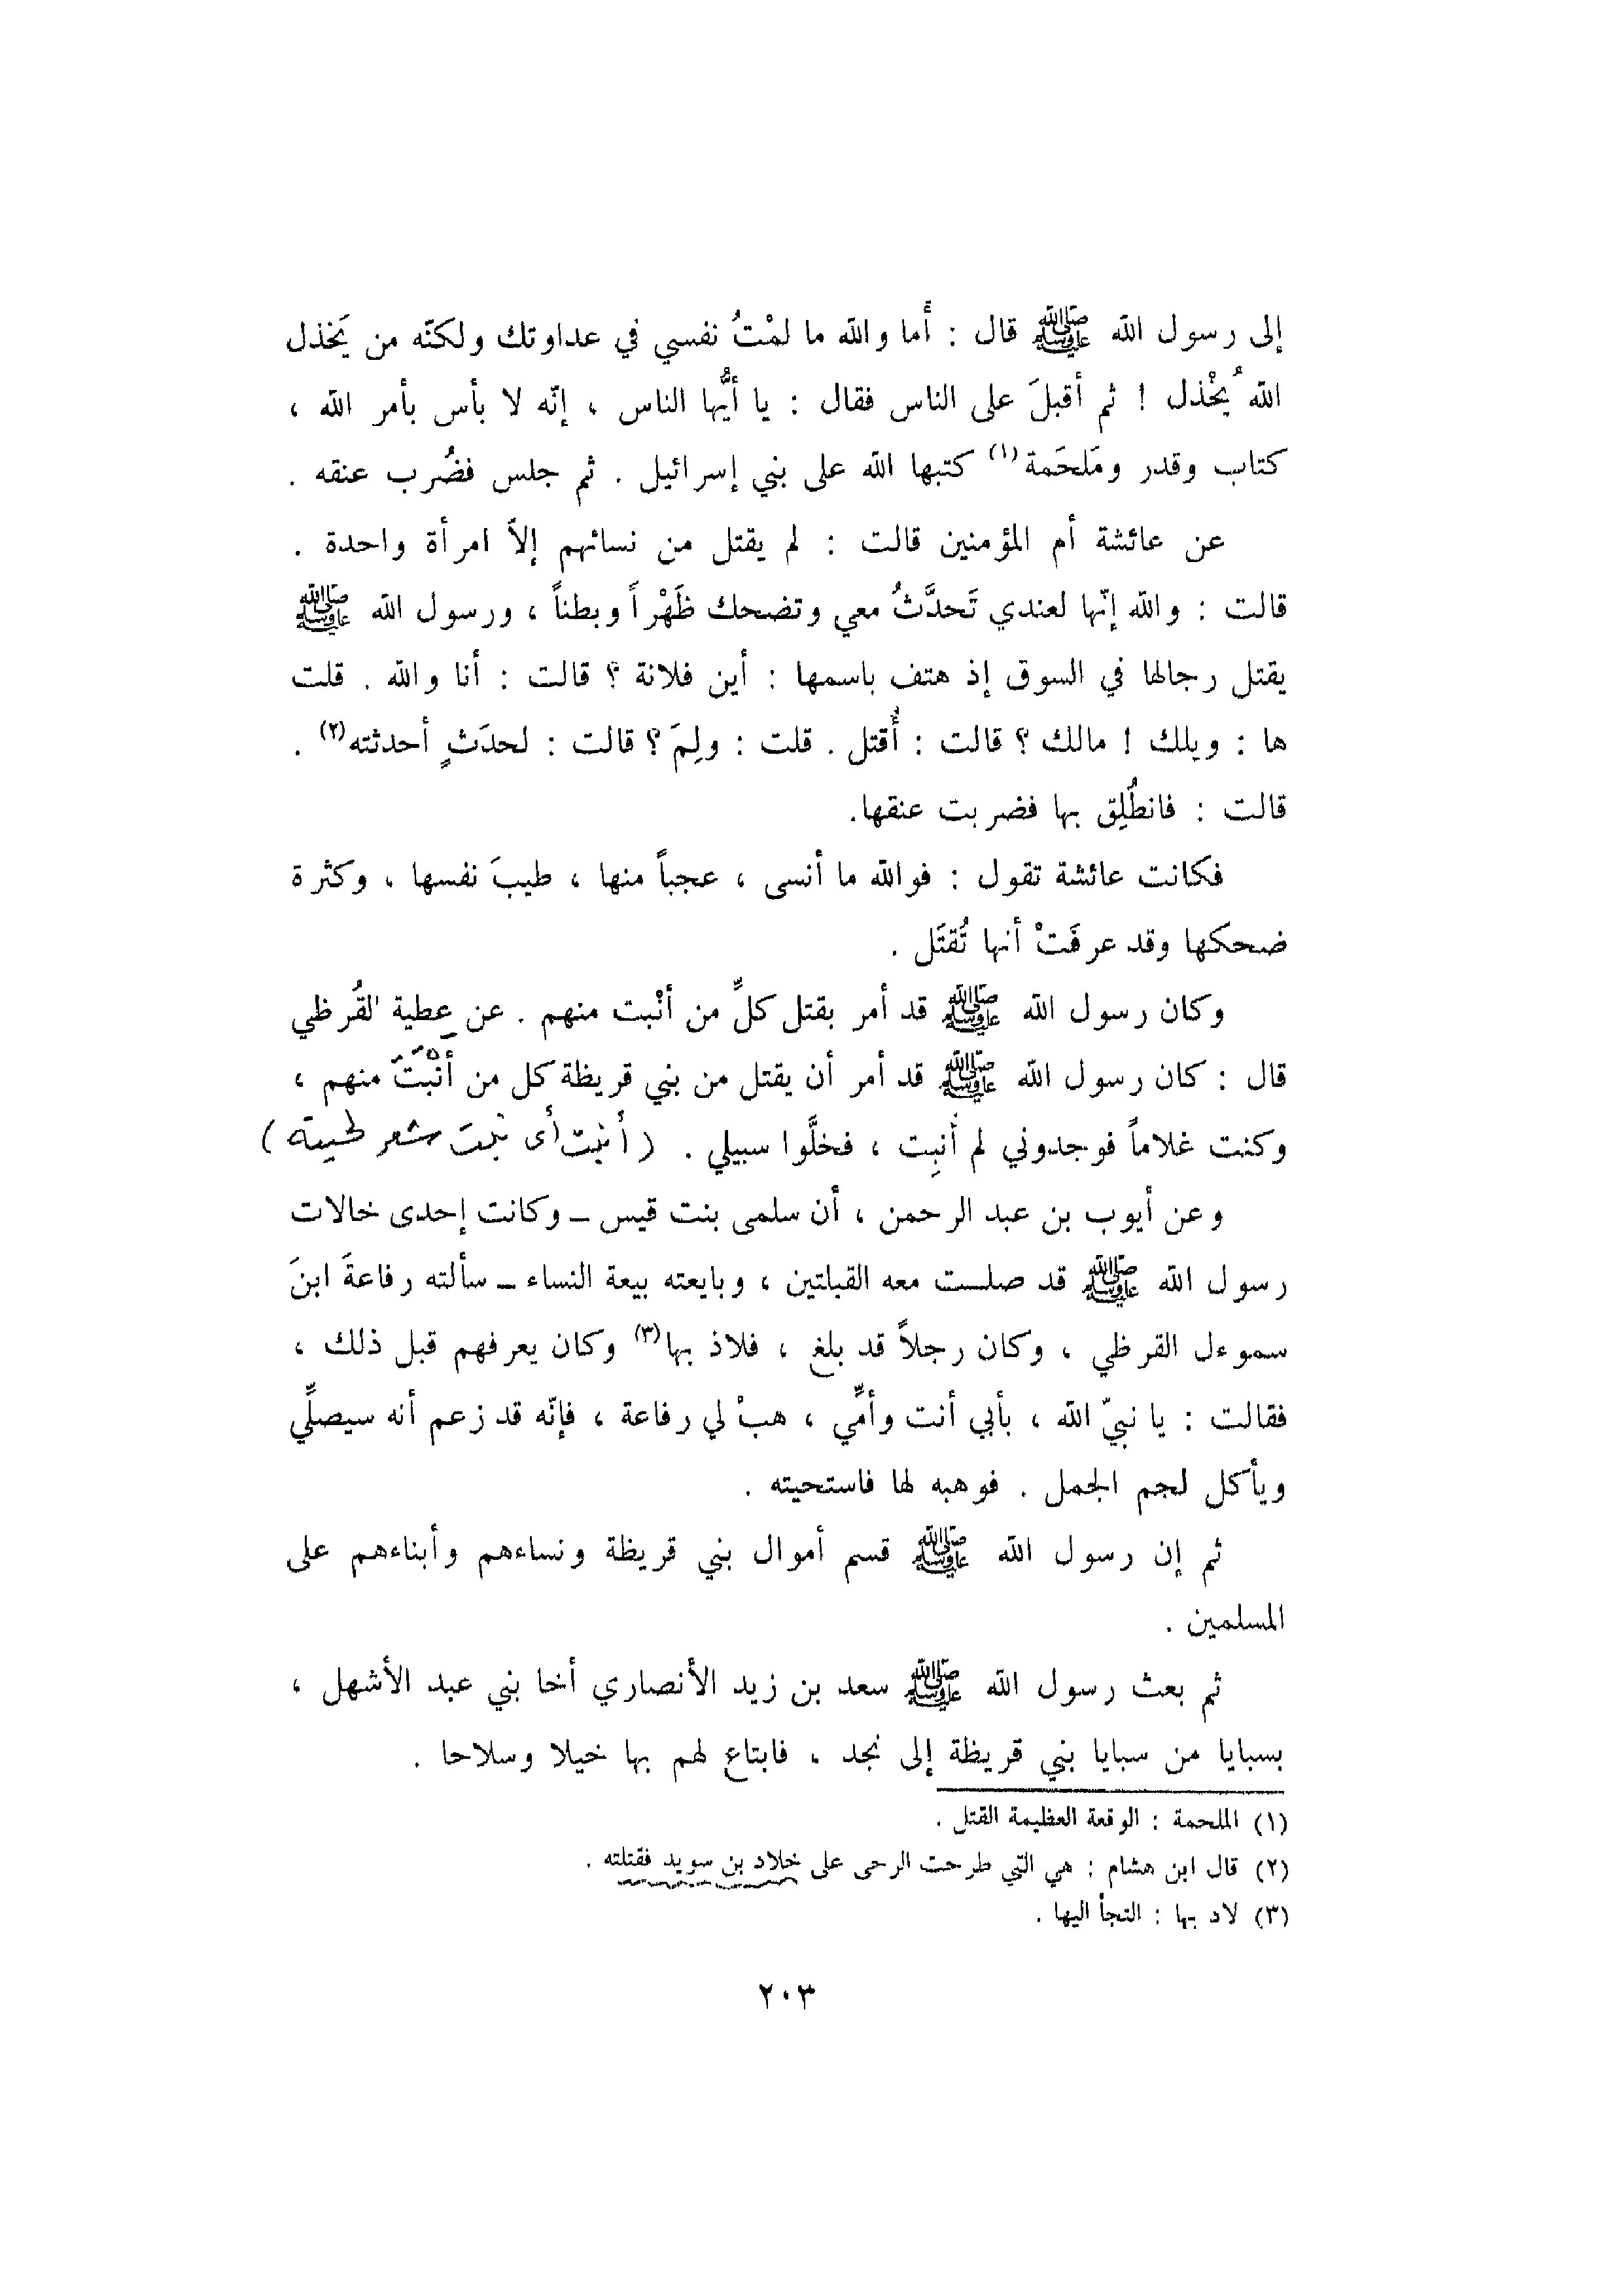 إلى رسول الله ﷺ قال : أَما والله ما لمْتُ نفسي في عداوتك ولكنّه من يَخذل
اللهُ يُخْذل ! ثم أقبلَ على الناس فقال : يا أيُّها الناس ، إنّه لا بأس بأمر الله ،
كتاب وقدر ومَلحَمة(١) كتبها الله على بني إسرائيل . ثم جلس فضُرب عنقه .
عن عائشة أم المؤمنين قالت : لم يقتل من نسائهم إلاّ امرأة واحدة .
قالت : والله إنّها لعندي تَحدَّثُ معي وتضحك ظَهْراً وبطناً ، ورسول الله ﷺ
يقتل رجالها في السوق إذ هتف باسمها : أين فلانة ؟ قالت : أنا والله . قلت
ها : ويلك ! مالك ؟ قالت : أُقتل . قلت : ولِمَ ؟ قالت : لحدَثٍ أحدثته(٢) .
قالت : فانطُلِق بها فضربت عنقها.
فكانت عائشة تقول : فوالله ما أنسى ، عجباً منها ، طيبَ نفسها ، وكثرة
ضحكها وقد عرفَتْ أنها تُقتَل .
وكان رسول الله ﷺ قد أمر بقتل كلِّ من أنْبت منهم . عن عطية القُرظي
قال : كان رسول الله ﷺ قد أمر أن يقتل من بني قريظة كل من أَنْبَتَ منهم ،
وكنت غلاماً فوجدوني لم أُنبِت ، فخلَّوا سبيلي . ( أنبت أى نبت شعر لحيته )
وعن أيوب بن عبد الرحمن ، أن سلمى بنت قيس ــ وكانت إحدى خالات
رسول الله ﷺ قد صلت معه القبلتين ، وبايعته بيعة النساء ــ سألته رفاعةَ ابنَ
سموءل القرظي ، وكان رجلاً قد بلغ ، فلاذ بها(٣) وكان يعرفهم قبل ذلك ،
فقالت : يا نبيّ الله ، بأبي أنت وأمِّي ، هبْ لي رفاعة ، فإنّه قد زعم أنه سيصلِّي
ويأكل لحم الجمل . فوهبه لها فاستحيته .
ثم إن رسول الله ﷺ قسم أموال بني قريظة ونساءهم وأبناءهم على
المسلمين .
ثم بعث رسول الله ﷺ سعد بن زيد الأنصاري أخا بني عبد الأشهل ،
بسبايا من سبايا بني قريظة إلى نجد ، فابتاع لهم بها خيلا وسلاحا .
(١) الملحمة : الوقعة العظيمة القتل .
(٢) قال ابن هشام : هي التي طرحت الرحى على خلاد بن سويد فقتلته .
(٣) لاذ بها : التجأ اليها .
٢٠٣